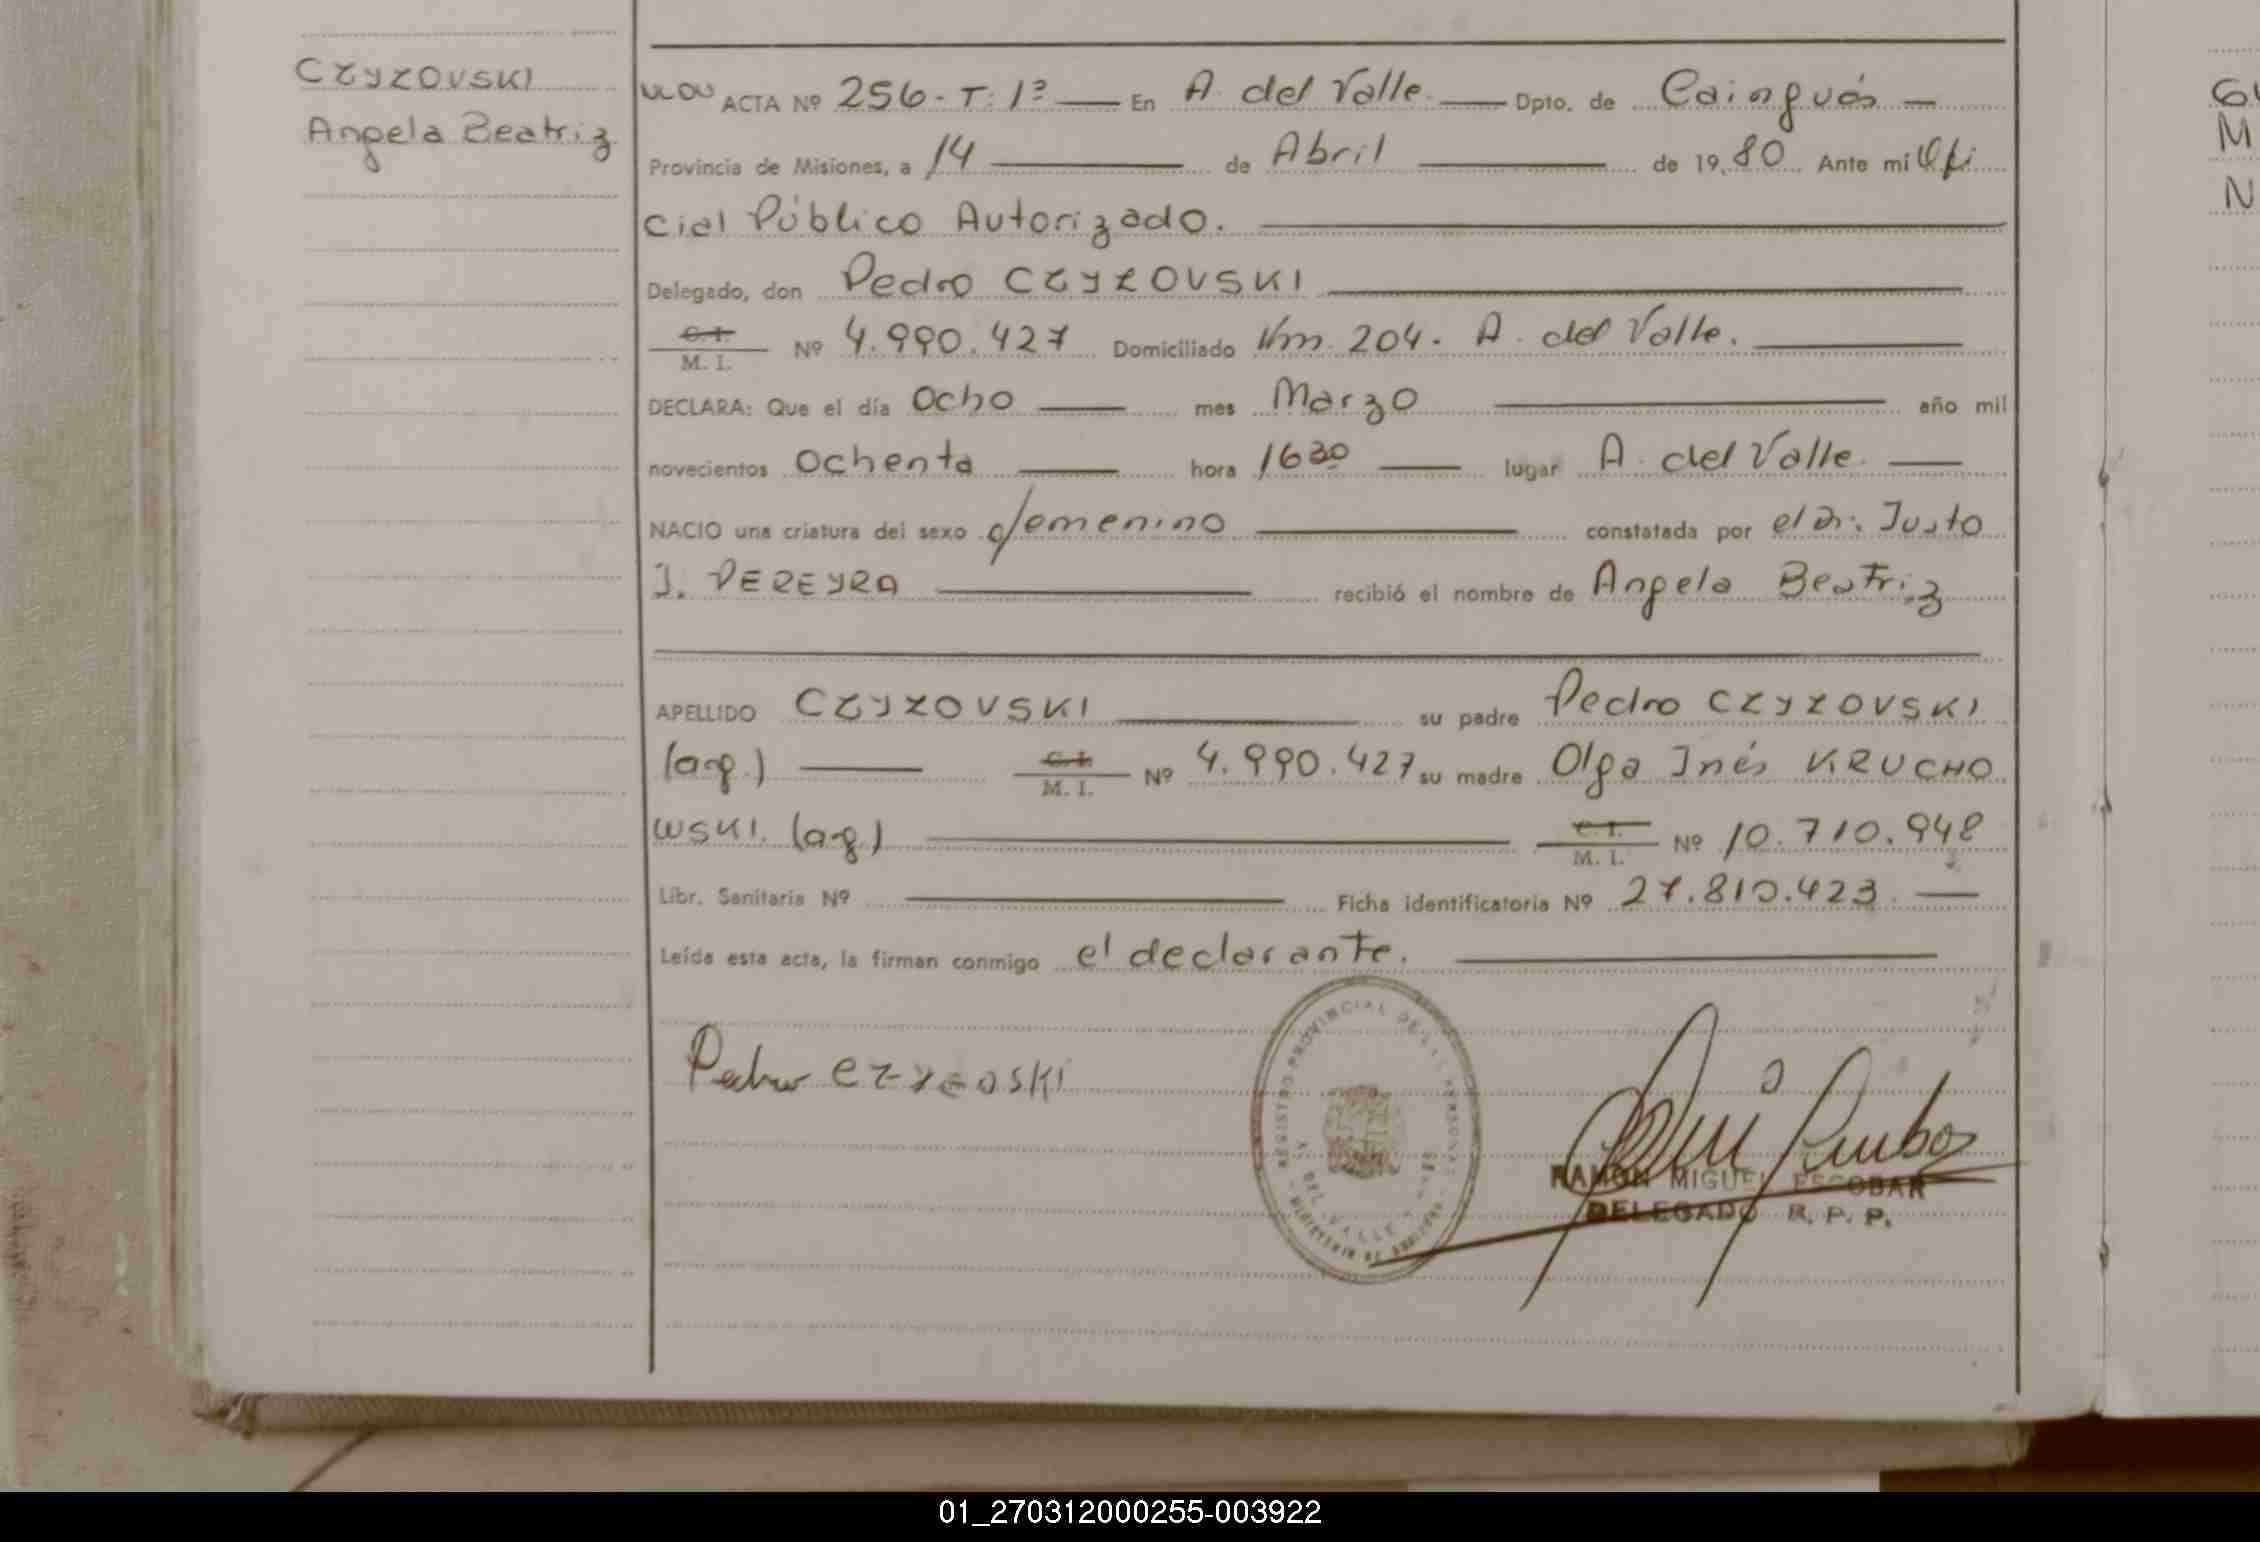 CZYZOVSKI
Angela Beatriz
ACTA Nº 256 - T: 1º — En A. del Valle. — Dpto. de Cainguás —
Provincia de Misiones, a 14 — de Abril — de 19.80 Ante mi Ofi
cial Público Autorizado.
Delegado, don Pedro CZYZOVSKI
C. I.
M. I. Nº 4.990.427 Domiciliado Km. 204. A. del Valle.
DECLARA: Que el día Ocho — mes Marzo — año mil
novecientos Ochenta — hora 1630 — lugar A. del Valle. —
NACIO una criatura del sexo femenino — constatada por el Dr. Justo
J. PEREYRA — recibió el nombre de Angela Beatriz
APELLIDO CZYZOVSKI — su padre Pedro CZYZOVSKI
(arg.) — C. I.
M. I. Nº 4.990.427 su madre Olga Inés KRUCHO
WSKI. (arg.) — C. I.
M. I. Nº 10.710.948
Libr. Sanitaria Nº — Ficha identificatoria Nº 27.810.423. —
Leída esta acta, la firman conmigo el declarante.
Pedro CZYZOSKI
REGISTRO PROVINCIAL DE LAS PERSONAS
A. DEL VALLE
PROVINCIA DE MISIONES
RAMON MIGUEL ESCOBAR
DELEGADO R. P. P.
01_270312000255-003922